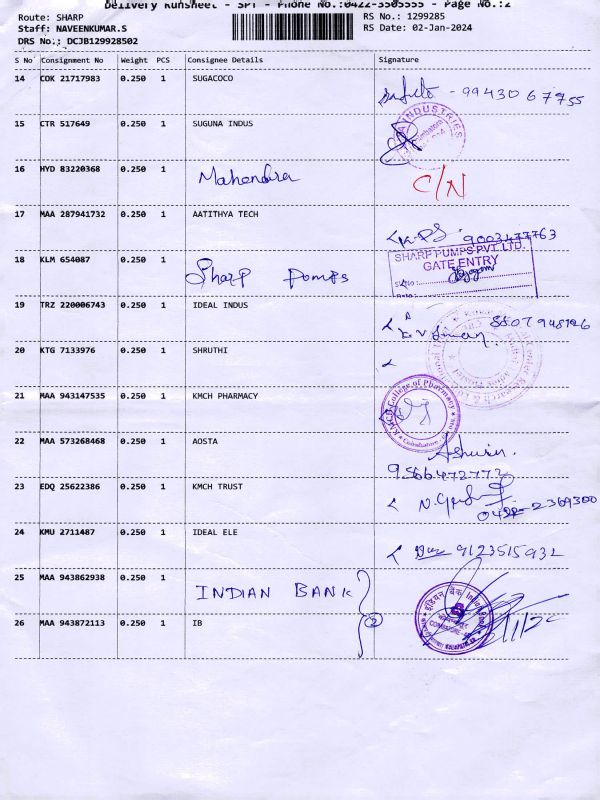 Delivery Runsheet - SPT - Phone No.:0422-3505555 - Page No.:2
Route: SHARP
Staff: NAVEENKUMAR.S
DRS No.: DCJB129928502
RS No.: 1299285
RS Date: 02-Jan-2024
S No Consignment No Weight PCS Consignee Details Signature
14 COK 21717983 0.250 1 SUGACOCO - 99430 67955
15 CTR 517649 0.250 1 SUGUNA INDUS INDUSTRIES
16 HYD 83220368 0.250 1 Mahendra C/N
17 MAA 287941732 0.250 1 AATITHYA TECH 9003477763
18 KLM 654087 0.250 1 Sharp Pumps
SHARP PUMPS PVT. LTD.
GATE ENTRY
19 TRZ 220006743 0.250 1 IDEAL INDUS
20 KTG 7133976 0.250 1 SHRUTHI
21 MAA 943147535 0.250 1 KMCH PHARMACY College of Pharmacy
22 MAA 573268468 0.250 1 AOSTA Ashwin.
9566472772
23 EDQ 25622386 0.250 1 KMCH TRUST
0422-2369300
24 KMU 2711487 0.250 1 IDEAL ELE 9123515932
25 MAA 943862938 0.250 1 INDIAN BANK
26 MAA 943872113 0.250 1 IB 2